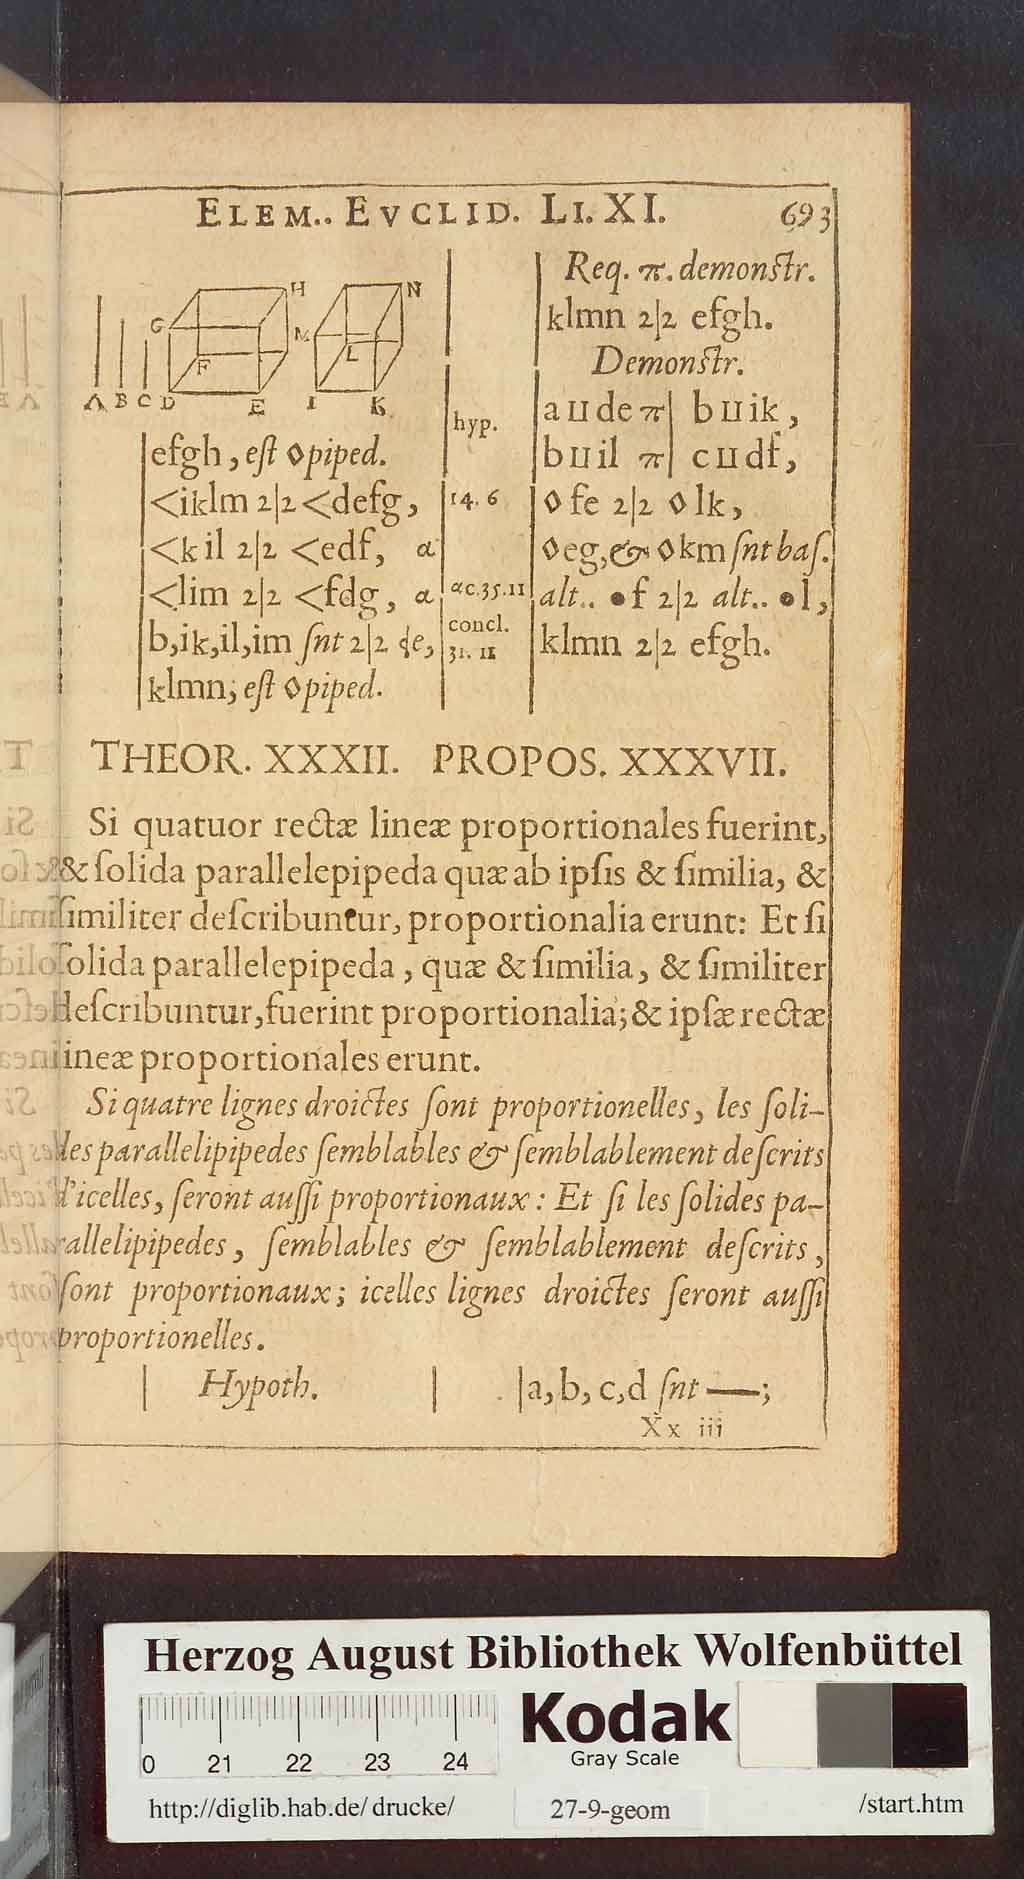 ELEM.. EVCLID. LI. XI. 693
H N
G M
F L
A B C D E I K
efgh, eſt ◊piped.
<iklm 2|2 <defg,
<kil 2|2 <edf, α
<lim 2|2 <fdg, α
b,ik,il,im ſnt 2|2 de,
klmn, eſt ◊piped.
hyp.
14. 6
αc.35.11
concl.
31. 11
Req. π. demonſtr.
klmn 2|2 efgh.
Demonſtr.
a ⊔ de π| b ⊔ ik,
b ⊔ il π| c ⊔ df,
◊ fe 2|2 ◊ lk,
◊eg,& ◊km ſnt baſ.
alt.. •f 2|2 alt.. •l,
klmn 2|2 efgh.
THEOR. XXXII. PROPOS. XXXVII.
Si quatuor rectæ lineæ proportionales fuerint,
& ſolida parallelepipeda quæ ab ipſis & ſimilia, &
ſimiliter deſcribuntur, proportionalia erunt: Et ſi
ſolida parallelepipeda, quæ & ſimilia, & ſimiliter
deſcribuntur, fuerint proportionalia; & ipſæ rectæ
lineæ proportionales erunt.
Si quatre lignes droictes ſont proportionelles, les ſoli-
des parallelipipedes ſemblables & ſemblablement deſcrits
d'icelles, ſeront auſſi proportionaux: Et ſi les ſolides pa-
rallelipipedes, ſemblables & ſemblablement deſcrits,
ſont proportionaux; icelles lignes droictes ſeront auſſi
proportionelles.
Hypoth. a, b, c, d ſnt —;
Xx iii
Herzog August Bibliothek Wolfenbüttel
Kodak
Gray Scale
0 21 22 23 24
http://diglib.hab.de/ drucke/ 27-9-geom /start.htm